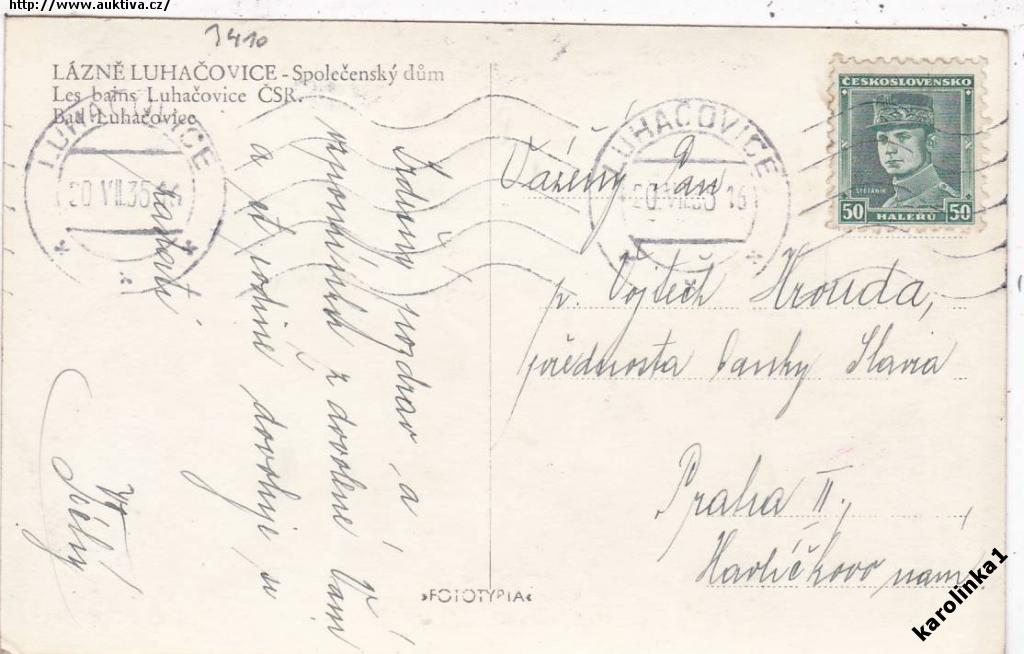 http://www.auktiva.cz/
3410
LÁZNĚ LUHAČOVICE - Společenský dům
Les bains Luhačovice ČSR.
Bad Luhačovice
LUHAČOVICE
20.VII.35-16
LUHAČOVICE
20.VII.35-16
ČESKOSLOVENSKO
ŠTEFÁNIK
50 HALÉŘŮ 50
Srdečný pozdrav a
vzpomínku z dovolené Vám
a ct. rodině dovoluje si
zaslati
Vážený Pan
p. Vojtěch Hrouda,
přednosta banky Slavia
Praha II.,
Havlíčkovo nám.
»FOTOTYPIA«
karolinka1